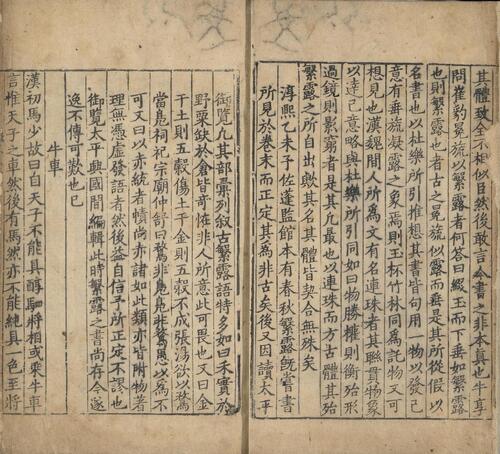 其體致全不相似臣然後敢言今書之非本真也牛享
問崔豹冕旒以繁露者何答曰綴玉而下垂如繁露
也則繁露也者古之冕旒似露而垂是其所從假以
名書也以杜樂所引推想其書皆句用一物以發已
意有垂旒凝露之象焉則玉杯竹林同爲託物又可
想見也漢魏間人所爲文有名連珠者其聯貫物象
以達已意略與杜樂所引同如曰物勝權則衡殆形
過鏡則影窮者是其凡最也以連珠而方古體其殆
繁露之所自出歟其名其體皆契合無殊矣
淳熙乙未予佐達監館本有春秋繁露既嘗書
所見於卷末而正定其爲非古矣後又因讀太平
御覽凡其部彙列叙古繁露語特多如曰禾實於
野粟缺於倉皆奇怪非人所意此可畏也又曰金
干土則五穀傷土干金則五穀不成張湯欲以鶩
當鳬祠祀宗廟仲舒曰鶩非鳬鳬非鶩愚以爲不
可又曰以赤統者幘尚赤諸如此類亦皆附物著
理無憑虛發語者然後益自信予所正定不謬也
御覽太平興國間編輯此時繁露之書尚存今遂
逸不傳可歎也已
牛車
漢初馬少故曰自天子不能具醇駟將相或乘牛車
言惟天子之車然後有馬然亦不能純具一色至將